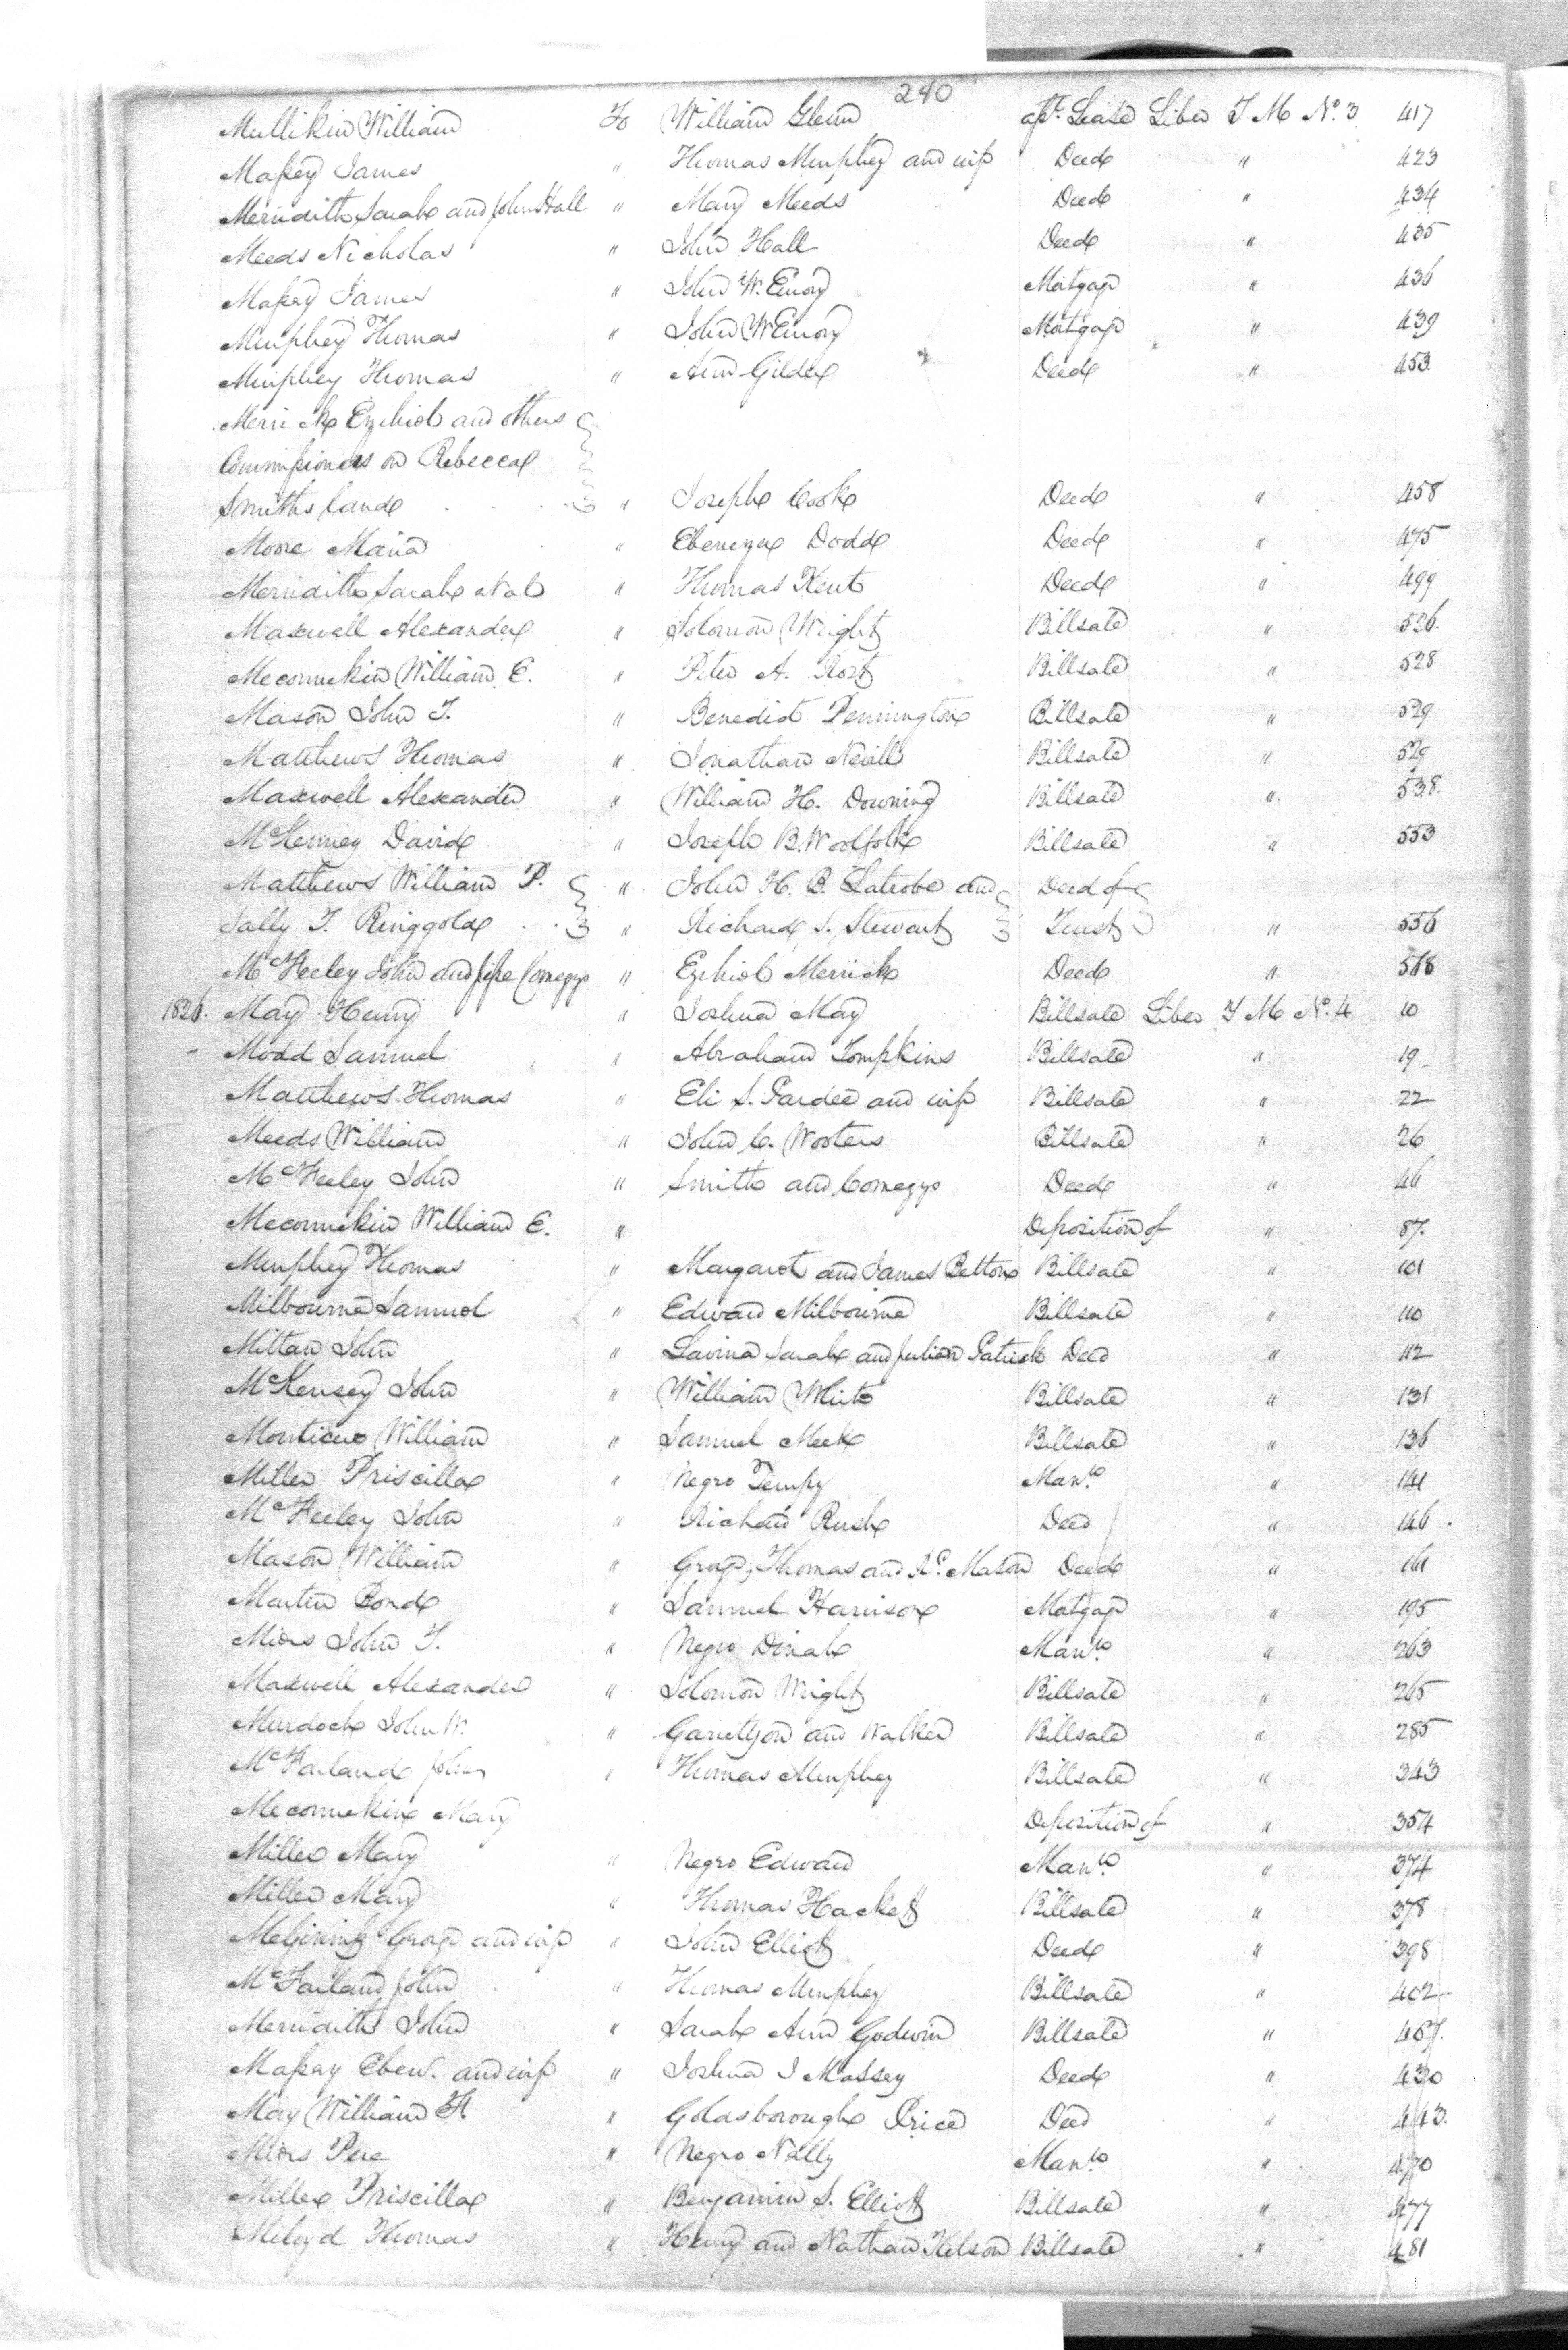 240
Mullikin William To William Glenn asst. Lease Liber T M No. 3 417
Massey James " Thomas Murphey and wife Deed " 423
Merridith Sarah and John Hall " Mary Meeds Deed " 434
Meeds Nicholas " John Hall Deed " 435
Massey James " John W. Emory Mortgage " 436
Murphey Thomas " John W Emory Mortgage " 439
Murphey Thomas " Ann Gilder Deed " 453
Merrick Ezekiel and others
Commissioners on Rebecca
Smiths land " Joseph Cook Deed " 458
Moore Maria " Ebenezer Dodd Deed " 475
Merridith Sarah et al " Thomas Kent Deed " 499
Maxwell Alexander " Solomon Wright Billsale " 526
Meconnekin William E. " Peter A. Billsale " 528
Mason John T. " Benedict Pennington Billsale " 529
Matthews Thomas " Jonathan Nevill Billsale " 529
Maxwell Alexander " William H. Downing Billsale " 538
McKenney David " Joseph B. Woolfolk Billsale " 553
Matthews William P. " John H. B. Latrobe and Deed of
Sally T. Ringgold " Richard S. Stewart Trust " 556
McFeeley John and Jesse Comegys " Ezekiel Merrick Deed " 568
1826. May Henry " Joshua May Billsale Liber T M No. 4 10
Modd Samuel " Abraham Tompkins Billsale " 19
Matthews Thomas " Eli S. Pardee and wife Billsale " 22
Meeds William " John C. Wooters Billsale " 26
McFeeley John " Smith and Comegys Deed " 46
Meconnekin William E. " Deposition of " 87
Murphey Thomas " Margaret and James Betton Billsale " 101
Milbourne Samuel " Edward Milbourne Billsale " 110
Mittan John " Lavina Sarah and Julian Patrick Deed " 112
McKensey John " William White Billsale " 131
Monticue William " Samuel Meek Billsale " 136
Miller Priscilla " Negro Tempy Manso " 141
McFeeley John " Richard Rush Deed " 146
Mason William " George, Thomas and Rd. Mason Deed " 161
Martin Bond " Samuel Harrison Mortgage " 195
Miers John T. " Negro Dinah Manso " 263
Maxwell Alexander " Solomon Wright Billsale " 265
Murdoch John W. " Garretson and Walker Billsale " 285
McFarland John " Thomas Murphey Billsale " 343
Meconnekin Mary Deposition of " 354
Miller Mary " Negro Edward Manso " 374
Miller Mary " Thomas Hackett Billsale " 378
McGinnis George and wife " John Elliott Deed " 398
McFarland John " Thomas Murphey Billsale " 402
Merridith John " Sarah Ann Godwin Billsale " 407
Massey Eben. and wife " Joshua J Massey Deed " 430
May William H. " Goldsborough Price Deed " 443
Miers Pere " Negro Nelly Manso " 470
Miller Priscilla " Benjamin S. Elliott Billsale " 477
Meloyd Thomas " Henry and Nathan Kelson Billsale " 481